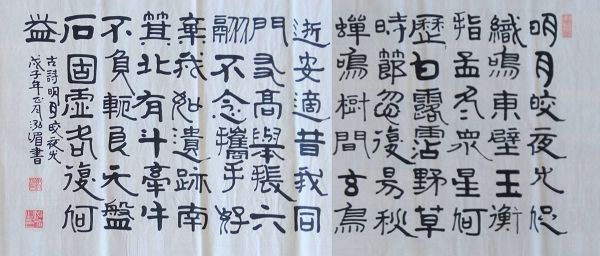 明月皎夜光促
織鳴東壁玉衡
指孟冬眾星何
歷白露霑野草
時節忽復易秋
蟬鳴樹間玄鳥
逝安適昔我同
門友高舉振六
翮不念攜手好
棄我如遺跡南
箕北有斗牽牛
不負軛良无盤
石固虛名復何
益
古詩明月皎夜光
戊子年正月眉書